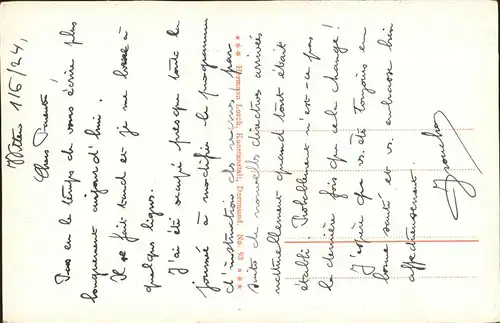 Witten 1/6/24,
Chers Parents
Pas eu le temps de vous écrire plus
longuement aujourd'hui.
Il se fait tard et je me hasse à
quelques lignes.
J'ai été occupé presque toute la
journée à modifier le programme
d'instructions des recrues, par
suite de nouvelles directives arrivées
naturellement quand tout était
établi. Probablement n'est-ce pas
la dernière fois que cela change!
J'espère que v. êtes toujours en
bonne santé et v. embrasse bien
affectueusement.
*** Hermann Lorch, Kunstanstalt, Dortmund. No. 93 ***